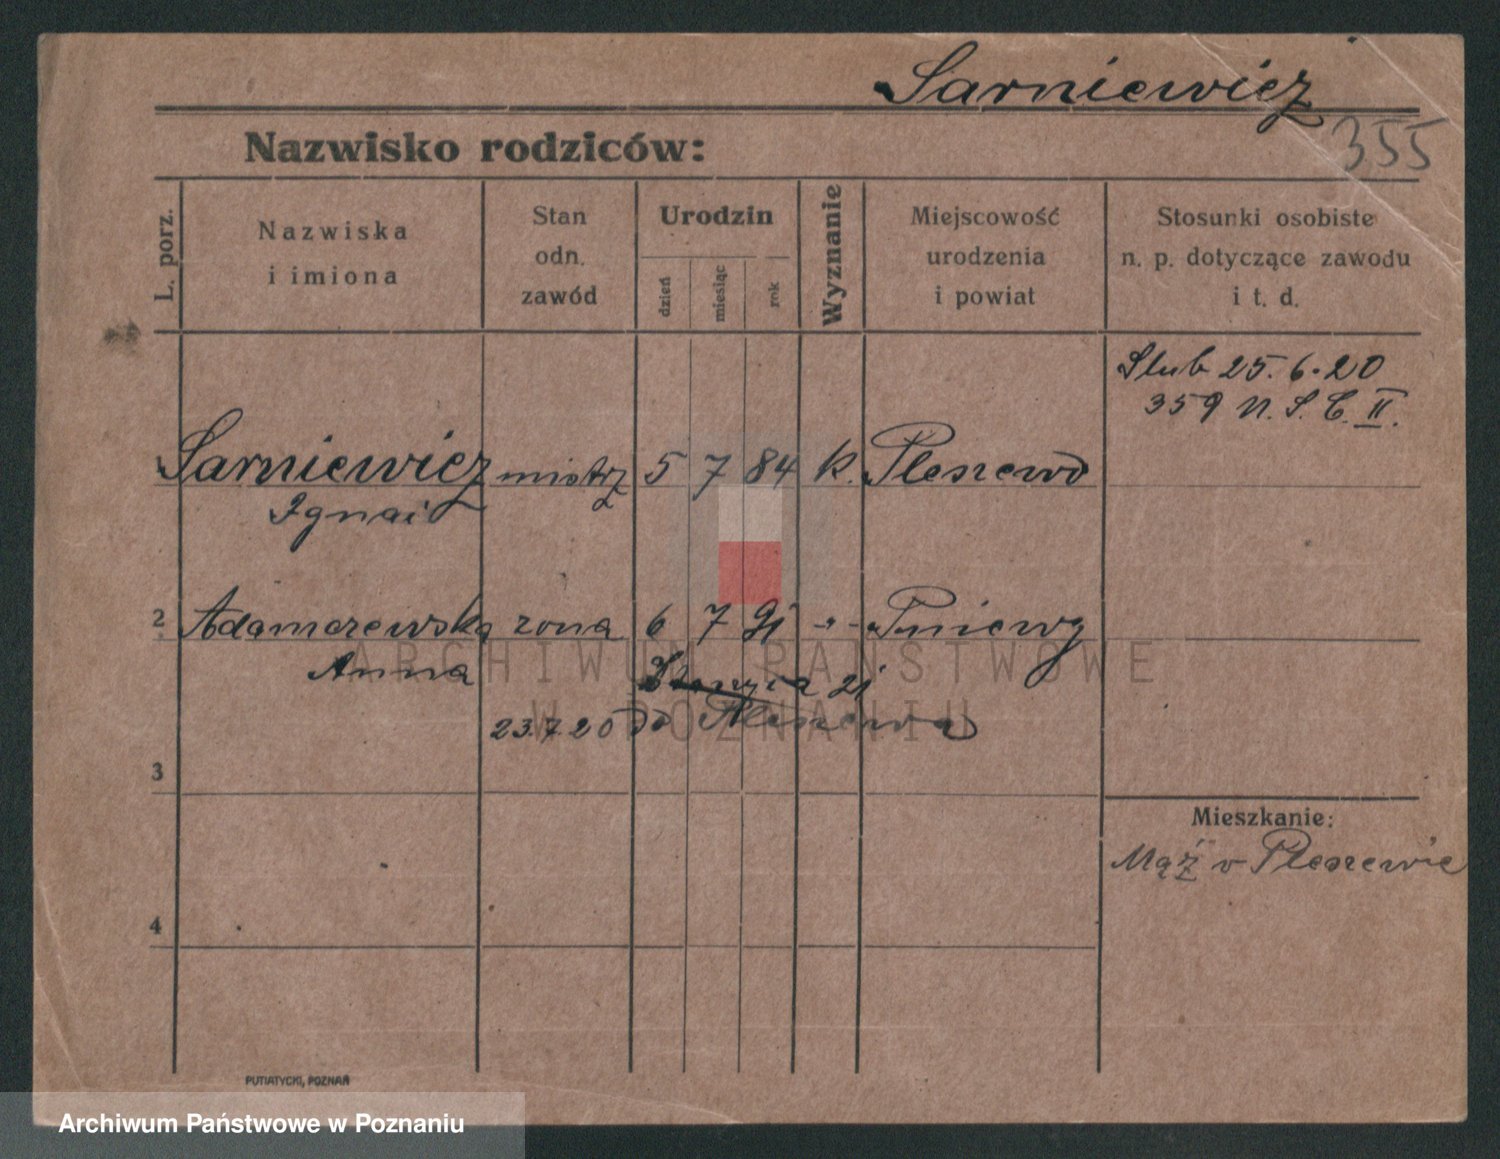 Sarniewicz
355
Nazwisko rodziców:
L. porz.
Nazwiska
i imiona
Stan
odn.
zawód
Urodzin
dzień
miesiąc
rok
Wyznanie
Miejscowość
urodzenia
i powiat
Stosunki osobiste
n. p. dotyczące zawodu
i t. d.
Slub 25.6.20
359 N. S. C. II.
Sarniewicz mistrz 5 7 84 k. Pleszewo
Ignac
2 Adamczewska żona 6 7 91 -"- Pniewy
Anna
21
23.7.20 do Pleszewa
3
Mieszkanie:
Mąż w Pleszewie
4
PUTIATYCKI, POZNAŃ
ARCHIWUM PAŃSTWOWE
W POZNANIU
Archiwum Państwowe w Poznaniu